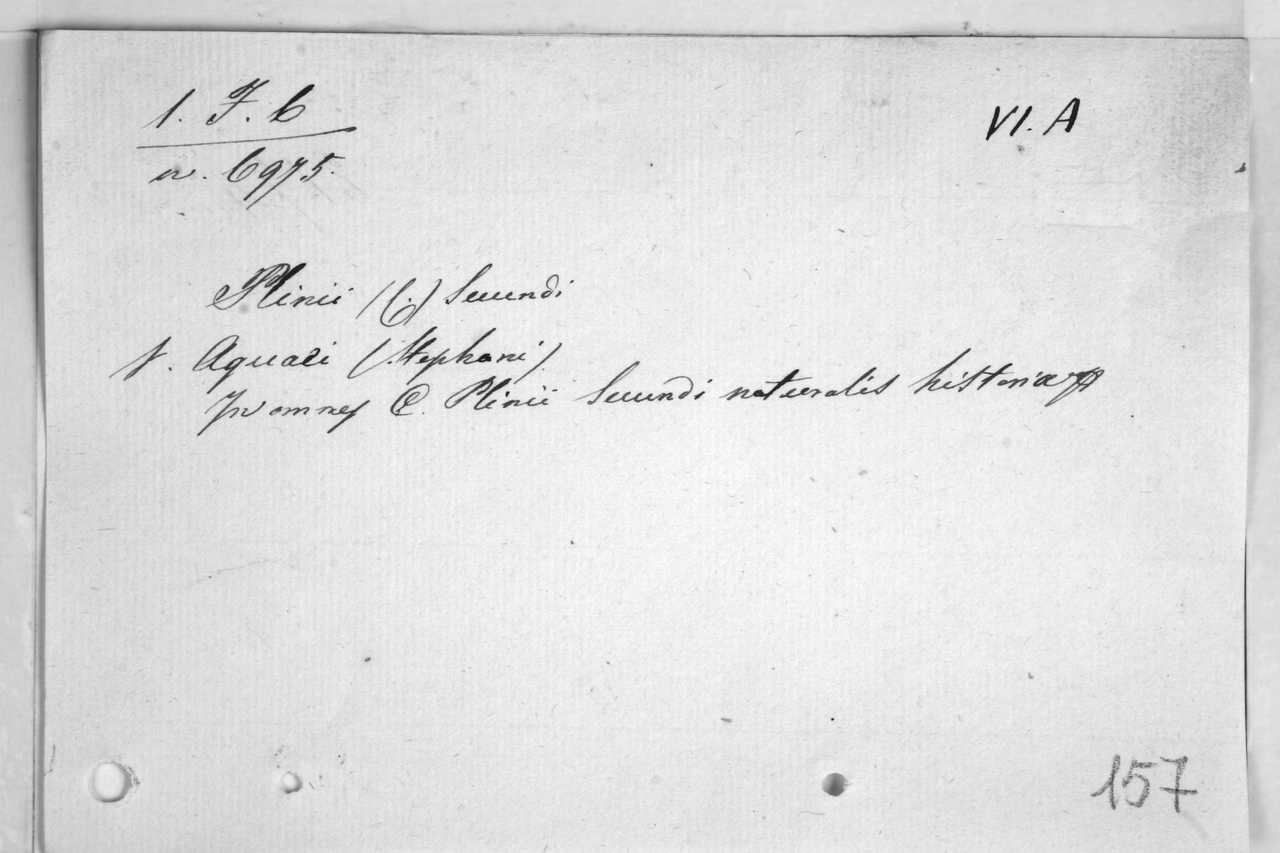 1. F. 6
VI. A
n. 6975.
Plinii (C.) Secundi
v. Aquaei (Stephani)
In omnes C. Plinii Secundi naturalis historiae
157